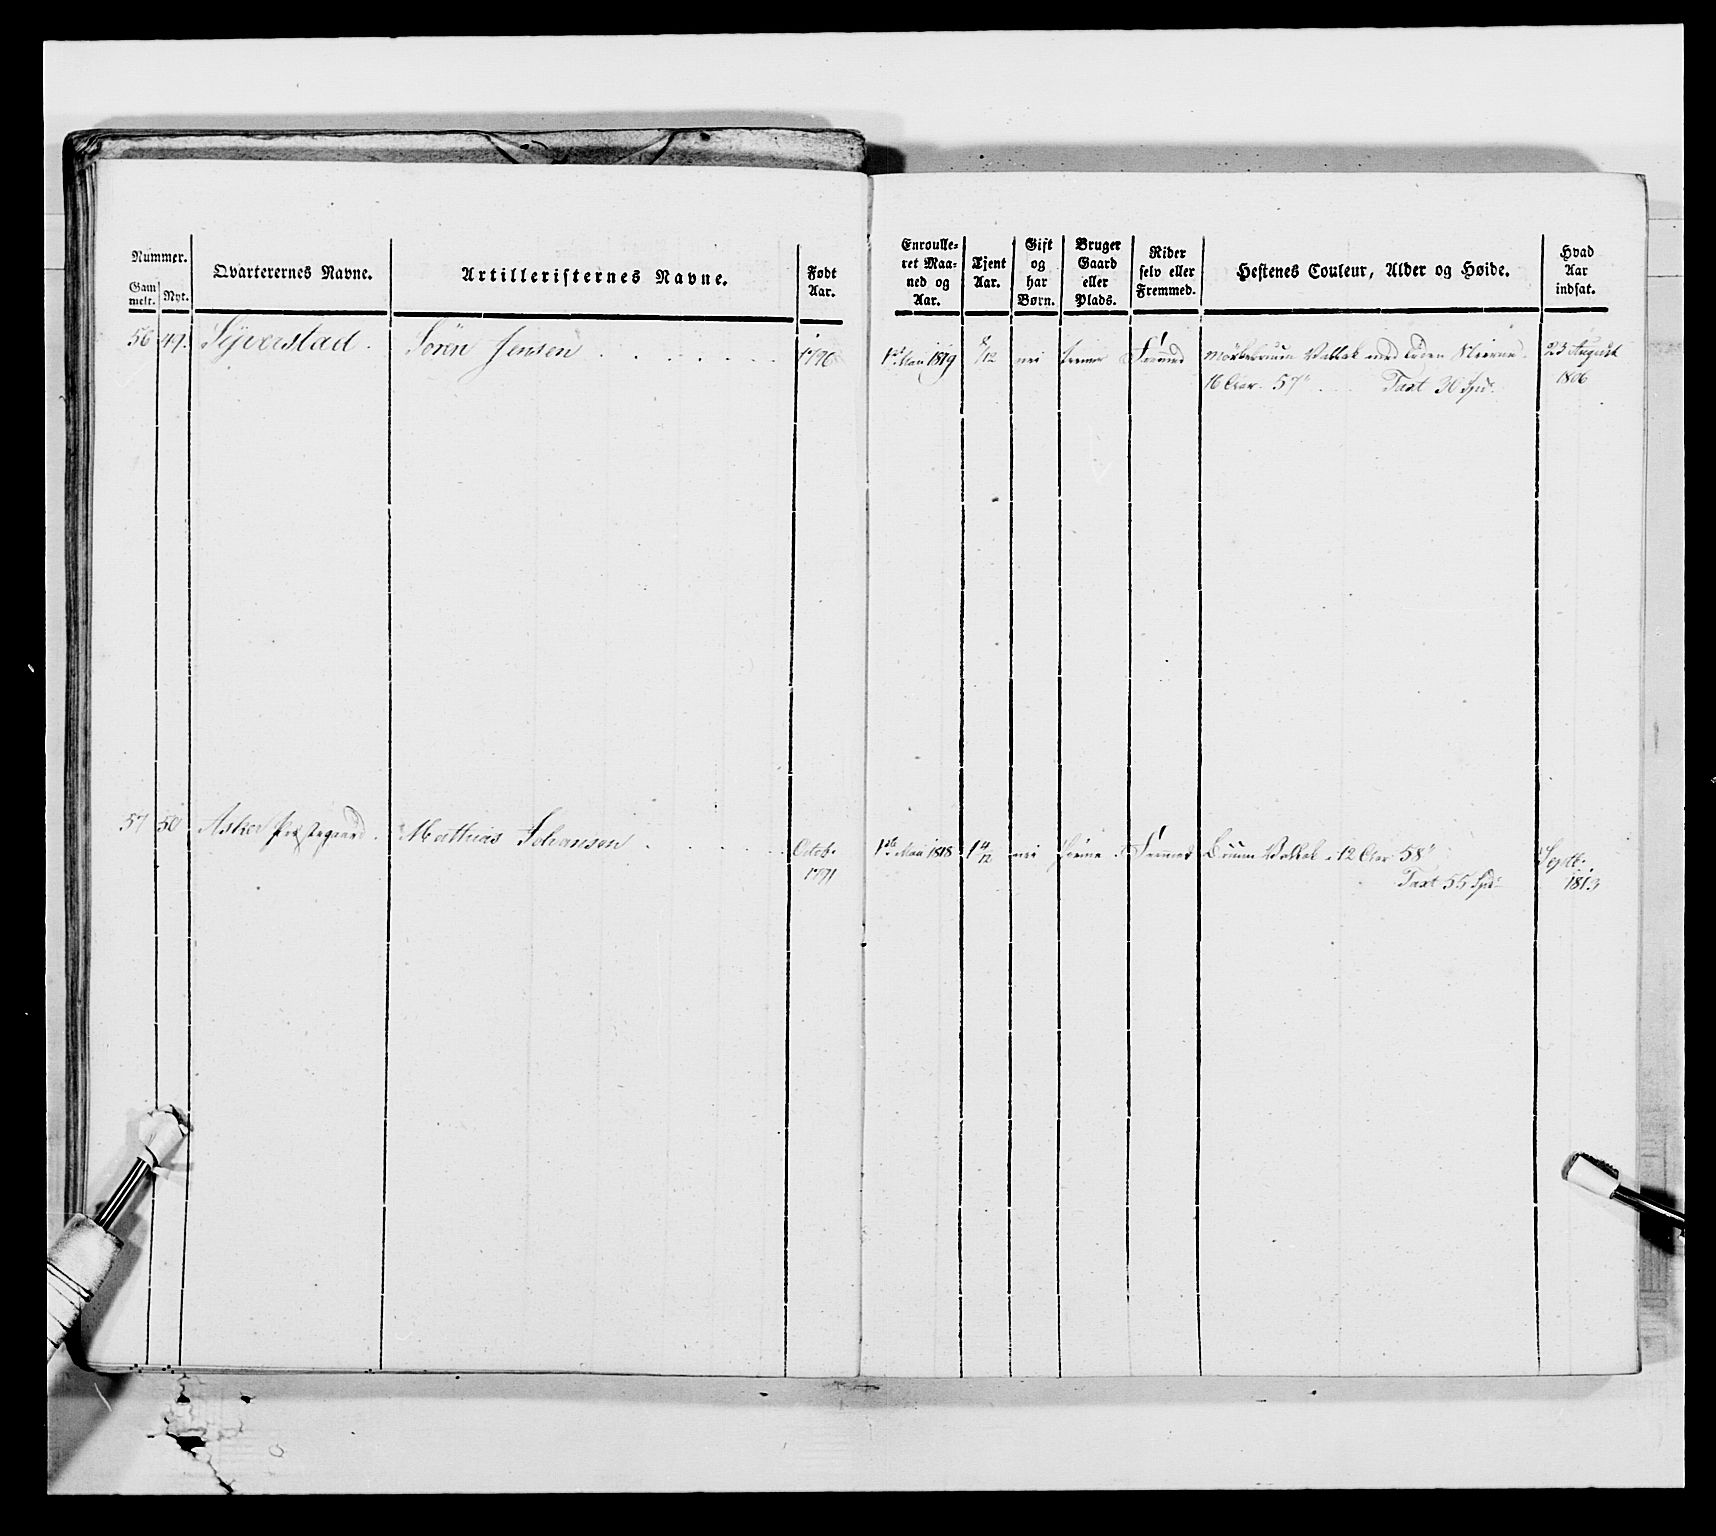 Nummer.
Gam
melt. Nyt.
Qvarterernes Navne.
Artilleristernes Navne.
Født
Aar.
Enroulle-
ret Maa-
ned og
Aar.
Tjent
Aar.
Gift
og
har
Børn.
Bruger
Gaard
eller
Plads.
Rider
selv eller
Fremmed.
Hestenes Couleur, Alder og Høide.
Hvad
Aar
indsat.
56 49. Syverstad. Sören Jensen 1796 1st Mai 1819 8/12 nei Fremmed Mörkebruun Vallak med liden Stierne. 23 August
16 Aar 57" Taxt 30 Spd. 1806
57 50 Asker Præstegaard. Mathias Johansen Octob. 1 Mai 1818 1 4/12 nei Fremmed Bruun Vallak 12 Aar 58" Septb.
1791 Taxt 55 Spd. 1813